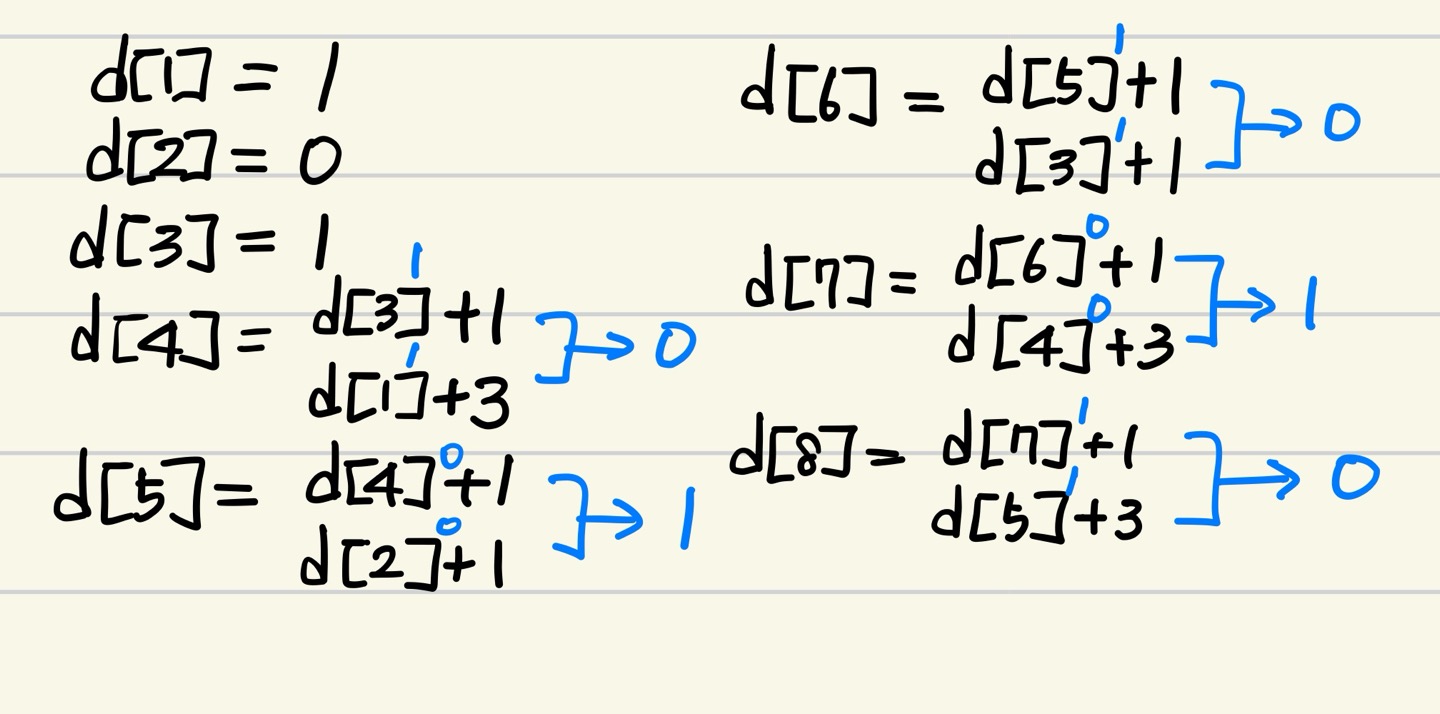 d[1] = 1
d[2] = 0
d[3] = 1
1
d[4] = d[3]+1
1
d[1]+3
→ 0
0
d[5] = d[4]+1
0
d[2]+1
→ 1
1
d[6] = d[5]+1
1
d[3]+1
→ 0
0
d[7] = d[6]+1
0
d[4]+3
→ 1
1
d[8] = d[7]+1
1
d[5]+3
→ 0